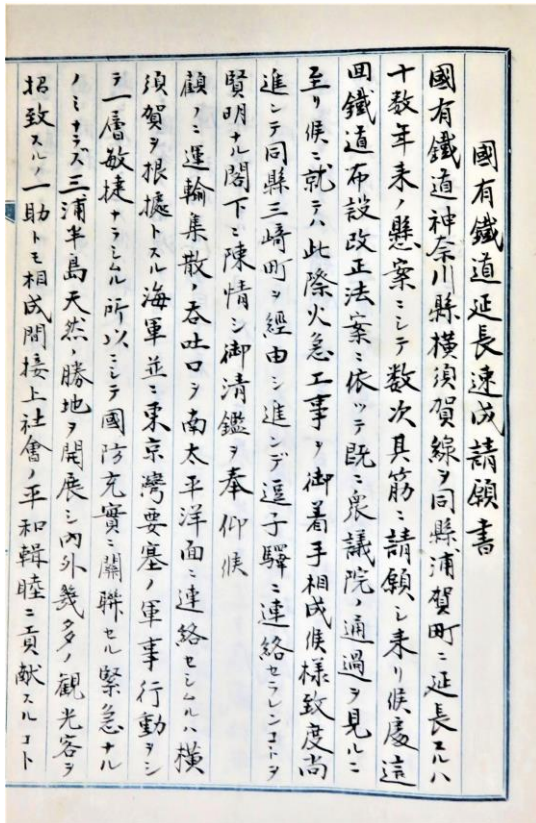 國有鐵道延長速成請願書
國有鐵道神奈川縣橫須賀線ヲ同縣浦賀町ニ延長スルハ
十数年来ノ懸案ニシテ数次其筋ニ請願シ来リ候處這
回鐵道布設改正法案ニ依ッテ既ニ衆議院ノ通過ヲ見ルニ
至リ候ニ就テハ此際火急工事ヲ御着手相成候様致度尚
進ンテ同縣三崎町ヲ經由シ進ンデ逗子驛ニ連絡セラレンコトヲ
賢明ナル閣下ニ陳情シ御清鑑ヲ奉仰候
顧ノニ運輸集散ノ吞吐口ヲ南太平洋面ニ連絡セシムルハ橫
須賀ヲ根據トスル海軍並ニ東京灣要塞ノ軍事行動ヲシ
テ一層敏捷ナラシムル所以ニシテ國防充實ニ關聯セル緊急ナル
ノミナラズ三浦半島天然ノ勝地ヲ開展シ內外幾多ノ観光客ヲ
招致スルノ一助トモ相成間接上社會ノ平和輯睦ニ貢献スルコト